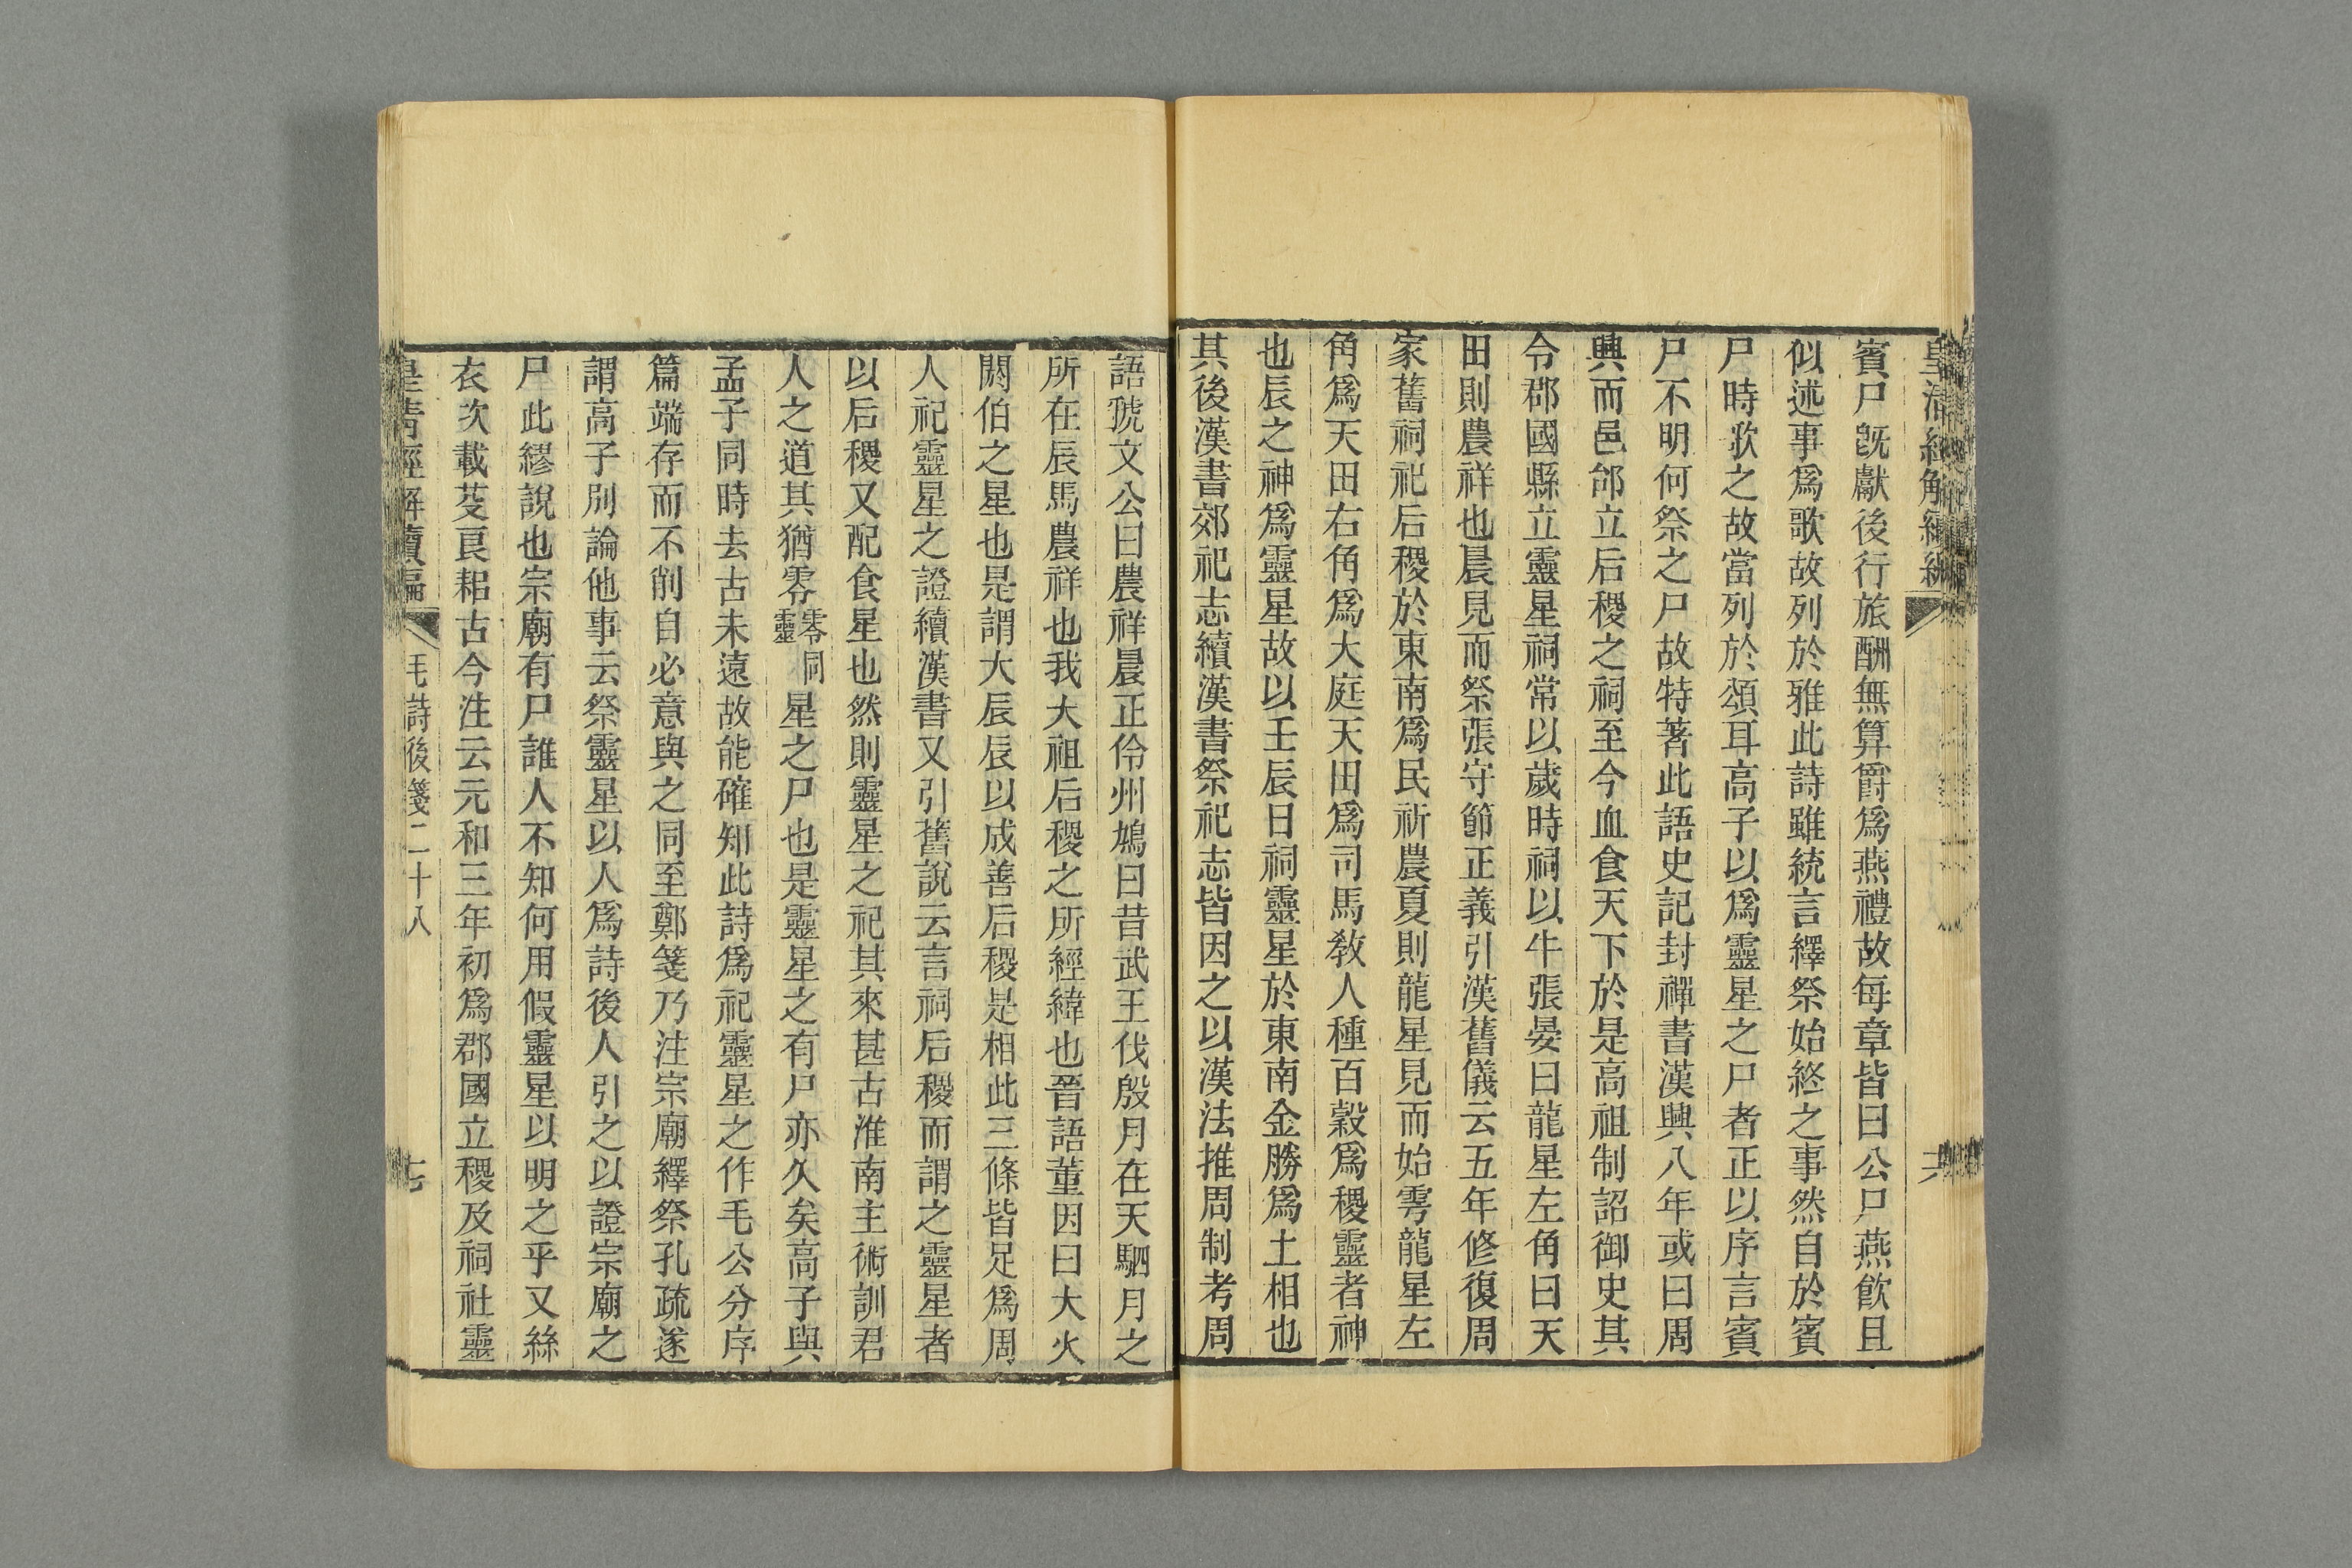 賓尸旣獻後行旅酬無算爵爲燕禮故每章皆曰公尸燕飮且
似述事爲歌故列於雅此詩雖統言繹祭始終之事然自於賓
尸時歌之故當列於頌耳高子以爲靈星之尸者正以序言賓
尸不明何祭之尸故特著此語史記封禪書漢興八年或曰周
興而邑邰立后稷之祠至今血食天下於是高祖制詔御史其
令郡國縣立靈星祠常以歲時祠以牛張晏曰龍星左角曰天
田則農祥也晨見而祭張守節正義引漢舊儀云五年修復周
家舊祠祀后稷於東南爲民祈農夏則龍星見而始雩龍星左
角爲天田右角爲大庭天田爲司馬敎人種百穀爲稷靈者神
也辰之神爲靈星故以壬辰日祠靈星於東南金勝爲土相也
其後漢書郊祀志續漢書祭祀志皆因之以漢法推周制考周
語虢文公曰農祥晨正伶州鳩曰昔武王伐殷月在天駟月之
所在辰馬農祥也我太祖后稷之所經緯也晉語董因曰大火
閼伯之星也是謂大辰辰以成善后稷是相此三條皆足爲周
人祀靈星之證續漢書又引舊說云言祠后稷而謂之靈星者
以后稷又配食星也然則靈星之祀其來甚古淮南主術訓君
人之道其猶零零同靈星之尸也是靈星之有尸亦久矣高子與
孟子同時去古未遠故能確知此詩爲祀靈星之作毛公分序
篇端存而不削自必意與之同至鄭箋乃注宗廟繹祭孔疏遂
謂高子別論他事云祭靈星以人爲詩後人引之以證宗廟之
尸此繆說也宗廟有尸誰人不知何用假靈星以明之乎又絲
衣次載芟良耜古今注云元和三年初爲郡國立稷及祠社靈
皇淸經解續編
毛詩後箋二十八
七